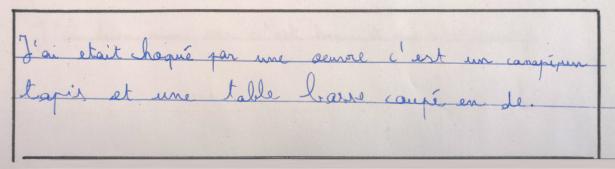 J'ai etait choqué par une oeuvre c'est un canapé, un
tapis et une table basse coupé en de.